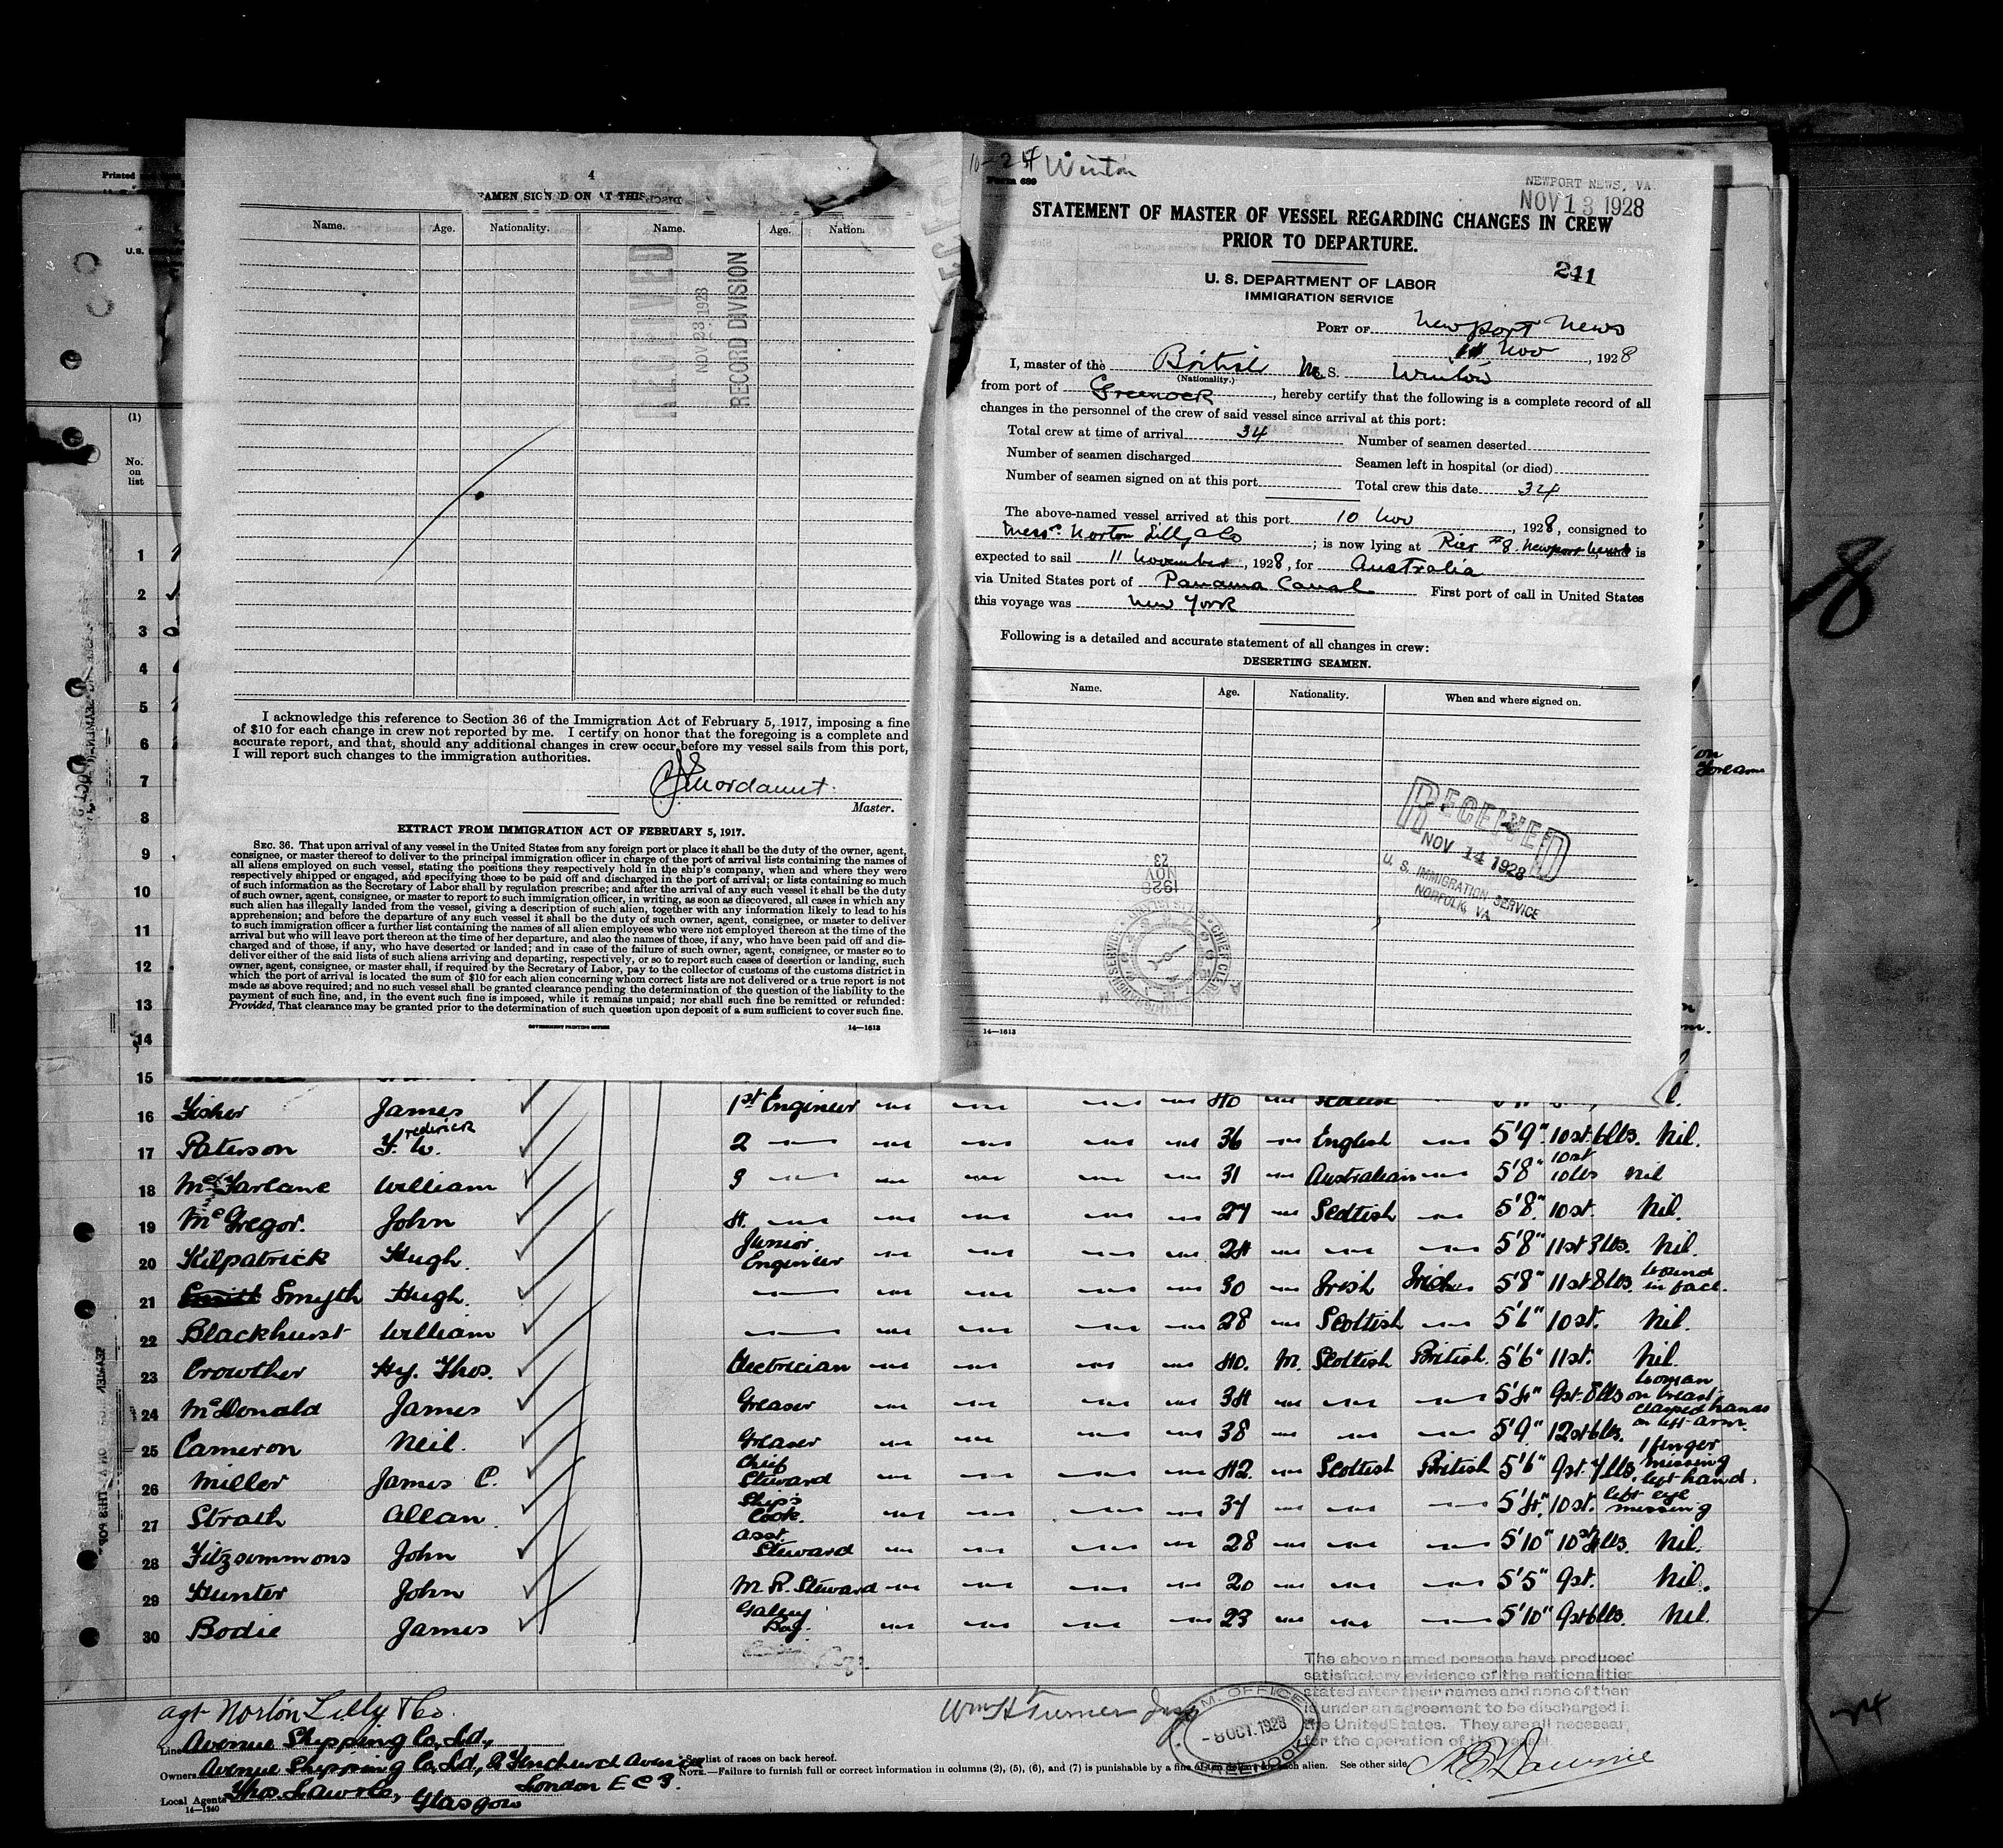 Printed
U.S.
(1)
No.
on
list
4
SEAMEN SIGNED ON AT THIS
Name. Age. Nationality. Name. Age. Nation
RECEIVED
NOV 23 1928
RECORD DIVISION
I acknowledge this reference to Section 36 of the Immigration Act of February 5, 1917, imposing a fine
of $10 for each change in crew not reported by me. I certify on honor that the foregoing is a complete and
accurate report, and that, should any additional changes in crew occur before my vessel sails from this port,
I will report such changes to the immigration authorities.
Mordaunt
Master.
EXTRACT FROM IMMIGRATION ACT OF FEBRUARY 5, 1917.
SEC. 36. That upon arrival of any vessel in the United States from any foreign port or place it shall be the duty of the owner, agent,
consignee, or master thereof to deliver to the principal immigration officer in charge of the port of arrival lists containing the names of
all aliens employed on such vessel, stating the positions they respectively hold in the ship's company, when and where they were
respectively shipped or engaged, and specifying those to be paid off and discharged in the port of arrival; or lists containing so much
of such information as the Secretary of Labor shall by regulation prescribe; and after the arrival of any such vessel it shall be the duty
of such owner, agent, consignee, or master to report to such immigration officer, in writing, as soon as discovered, all cases in which any
such alien has illegally landed from the vessel, giving a description of such alien, together with any information likely to lead to his
apprehension; and before the departure of any such vessel it shall be the duty of such owner, agent, consignee, or master to deliver
to such immigration officer a further list containing the names of all alien employees who were not employed thereon at the time of the
arrival but who will leave port thereon at the time of her departure, and also the names of those, if any, who have been paid off and dis-
charged and of those, if any, who have deserted or landed; and in case of the failure of such owner, agent, consignee, or master so to
deliver either of the said lists of such aliens arriving and departing, respectively, or so to report such cases of desertion or landing, such
owner, agent, consignee, or master shall, if required by the Secretary of Labor, pay to the collector of customs of the customs district in
which the port of arrival is located the sum of $10 for each alien concerning whom correct lists are not delivered or a true report is not
made as above required; and no such vessel shall be granted clearance pending the determination of the question of the liability to the
payment of such fine, and, in the event such fine is imposed, while it remains unpaid; nor shall such fine be remitted or refunded:
Provided, That clearance may be granted prior to the determination of such question upon deposit of a sum sufficient to cover such fine.
GOVERNMENT PRINTING OFFICE 14—1613
Winton
Form 689
NEWPORT NEWS, VA.
NOV 13 1928
STATEMENT OF MASTER OF VESSEL REGARDING CHANGES IN CREW
PRIOR TO DEPARTURE.
241
U. S. DEPARTMENT OF LABOR
IMMIGRATION SERVICE
PORT OF Newport News
11 Nov, 1928
I, master of the British M S. Winton
(Nationality.)
from port of Greenock, hereby certify that the following is a complete record of all
changes in the personnel of the crew of said vessel since arrival at this port:
Total crew at time of arrival 34 Number of seamen deserted
Number of seamen discharged Seamen left in hospital (or died)
Number of seamen signed on at this port Total crew this date 34
The above-named vessel arrived at this port 10 Nov, 1928, consigned to
Messrs Norton Lilly & Co; is now lying at Pier #8 Newport News, and is
expected to sail 11 November, 1928, for Australia
via United States port of Panama Canal First port of call in United States
this voyage was New York
Following is a detailed and accurate statement of all changes in crew:
DESERTING SEAMEN.
Name. Age. Nationality. When and where signed on.
RECEIVED
NOV 14 1928
U. S. IMMIGRATION SERVICE
NORFOLK, VA.
1928
NOV
23
14—1613
8
1
2
3
4
5
6
7
8
9
10
11
12
13
14
15
16 Fisher James 1st Engineer 40
17 Paterson F. W. Frederick 2 36 English 5'9" 10st.6lbs. Nil.
18 McFarlane William 3 31 Australian 5'8" 10st 10lbs nil
19 McGregor. John 4. 27 Scottish 5'8" 10st. Nil.
20 Kilpatrick Hugh. Junior Engineer 24 5'8" 11st 3lbs. Nil.
21 Smyth Hugh. 30 Irish Irish 5'8" 11st 8lbs. wound in face.
22 Blackhurst William 28 Scottish 5'6" 10st. Nil.
23 Crowther Hy. Thos. Electrician 40. M. Scottish British. 5'6" 11st. Nil.
24 McDonald James Greaser 34 5'4" 9st.8lbs woman on breast clasped hands on left arm.
25 Cameron Neil. Greaser 38 5'9" 12st6lbs.
26 Miller James C. Chief Steward 42. Scottish British 5'6" 9st.7lbs. 1 finger missing left hand.
27 Strath Allan Ship's Cook. 37 5'4". 10st. left eye missing
28 Fitzsimmons John Asst. Steward 28 5'10" 10st4lbs. Nil.
29 Hunter John M.R. Steward 20 5'5" 9st. Nil.
30 Bodie James Galley Boy. 23 5'10" 9st6lbs. Nil.
The above named persons have produced
satisfactory evidence of the nationalities
stated after their names and none of them
is under an agreement to be discharged in
the United States. They are all necessary
for the operation of the vessel.
agt Norton Lilly & Co.
Wm H Turner Insp
IMM. OFFICE
- 8 OCT. 1928
GREENOCK
Line Avenue Shipping Co., Ld.,
Owners Avenue Shipping Co, Ld., 2 Fenchurch Avenue
London E C 3.
Local Agents Thos. Law & Co, Glasgow
14—1240
* See list of races on back hereof.
NOTE.—Failure to furnish full or correct information in columns (2), (5), (6), and (7) is punishable by a fine of ten dollars for each alien. See other side